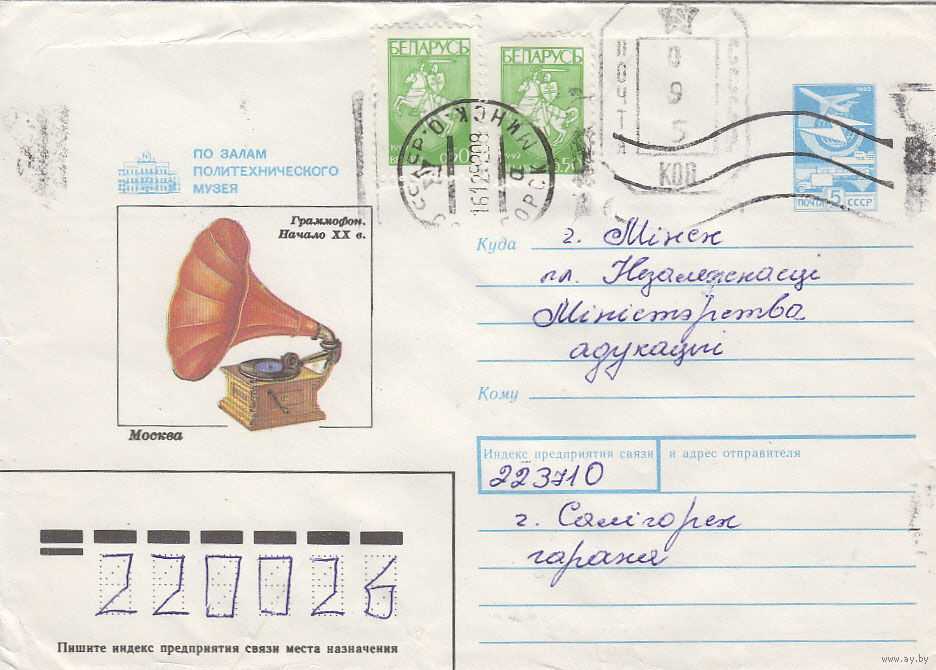 БЕЛАРУСЬ
БЕЛАРУСЬ
1992
ПОЧТА
0
9
5
КОП
1982
ПОЧТА 5 СССР
16.12.92 09
ПО ЗАЛАМ
ПОЛИТЕХНИЧЕСКОГО
МУЗЕЯ
Граммофон.
Начало XX в.
Москва
Куда г. Мінск
пл. Незалежнасці
Міністэрства
адукацыі
Кому
Индекс предприятия связи и адрес отправителя
223710
г. Салігорск
гаражи
220026
Пишите индекс предприятия связи места назначения
www.ay.by